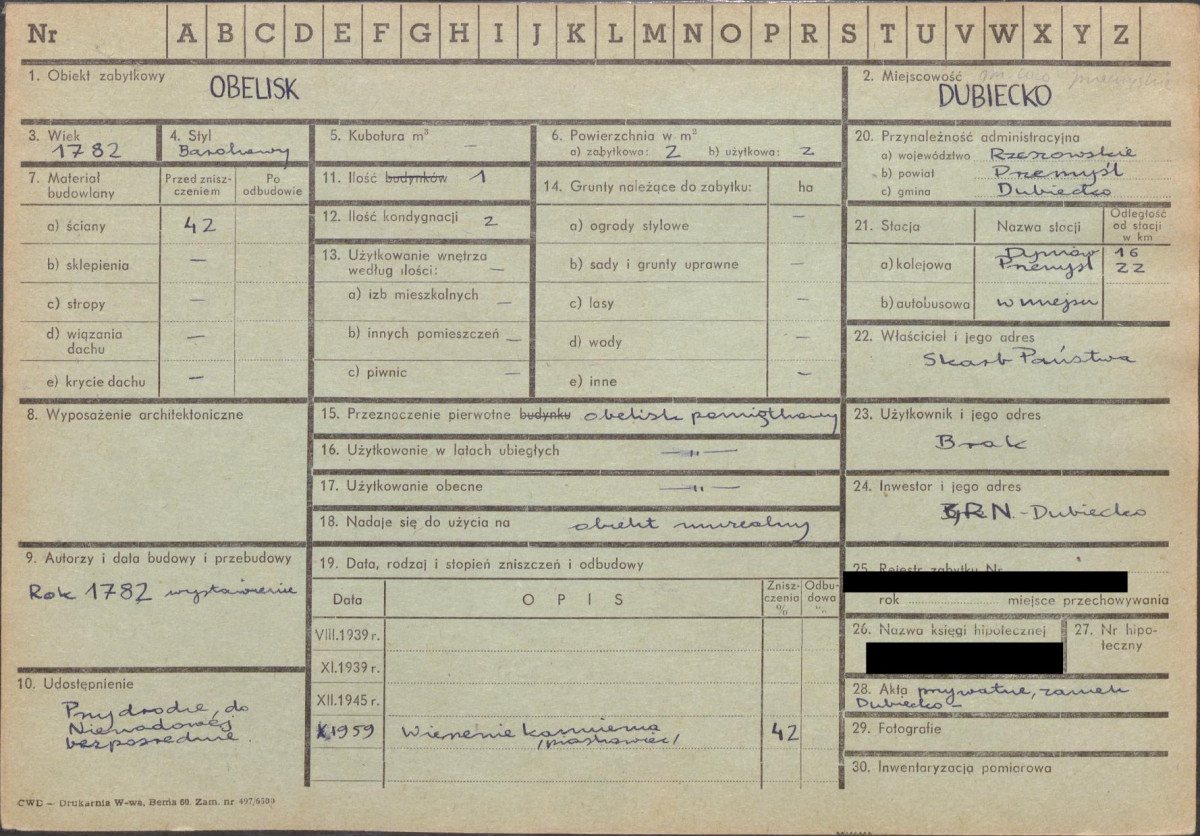 Nr A B C D E F G H I J K L M N O P R S T U V W X Y Z
1. Obiekt zabytkowy
OBELISK
2. Miejscowość
DUBIECKO
3. Wiek
1782
4. Styl
Barokowy
5. Kubatura m³ —
6. Powierzchnia w m²
a) zabytkowa: 2 b) użytkowa: 2
20. Przynależność administracyjna
a) województwo Rzeszowskie
b) powiat Przemyśl
c) gmina Dubiecko
7. Materiał budowlany
Przed zniszczeniem
Po odbudowie
a) ściany 42
b) sklepienia —
c) stropy —
d) wiązania dachu —
e) krycie dachu —
11. Ilość budynków 1
12. Ilość kondygnacji 2
13. Użytkowanie wnętrza
według ilości: —
a) izb mieszkalnych —
b) innych pomieszczeń —
c) piwnic —
14. Grunty należące do zabytku: ha
a) ogrody stylowe —
b) sady i grunty uprawne —
c) lasy —
d) wody —
e) inne —
21. Stacja Nazwa stacji Odległość od stacji w km
a) kolejowa Dynów 16
Przemyśl 22
b) autobusowa w miejscu
22. Właściciel i jego adres
Skarb Państwa
8. Wyposażenie architektoniczne
15. Przeznaczenie pierwotne budynku obelisk pamiątkowy
16. Użytkowanie w latach ubiegłych —"—
17. Użytkowanie obecne —"—
18. Nadaje się do użycia na obiekt muzealny
23. Użytkownik i jego adres
Brak
24. Inwestor i jego adres
G.R.N.-Dubiecko
9. Autorzy i data budowy i przebudowy
Rok 1782 wystawienie
19. Data, rodzaj i stopień zniszczeń i odbudowy
Data OPIS Zniszczenia % Odbudowa %
VIII.1939 r.
XI.1939 r.
XII.1945 r.
X1959 Wietrzenie kamienia 42
/piaskowiec/
25. Rejestr zabytku Nr
rok miejsce przechowywania
26. Nazwa księgi hipotecznej
27. Nr hipoteczny
10. Udostępnienie
Przy drodze, do
Nienadowej
bezpośrednie.
28. Akta prywatne, zamek
Dubiecko –
29. Fotografie
30. Inwentaryzacja pomiarowa
CWD — Drukarnia W-wa, Bema 60. Zam. nr 497/6500